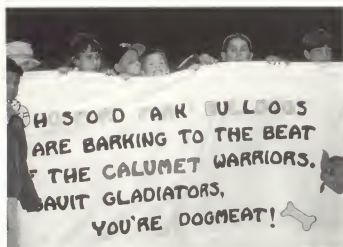 BULLDOGS
ARE BARKING TO THE BEAT
THE CALUMET WARRIORS.
GAVIT GLADIATORS,
YOU'RE DOGMEAT!